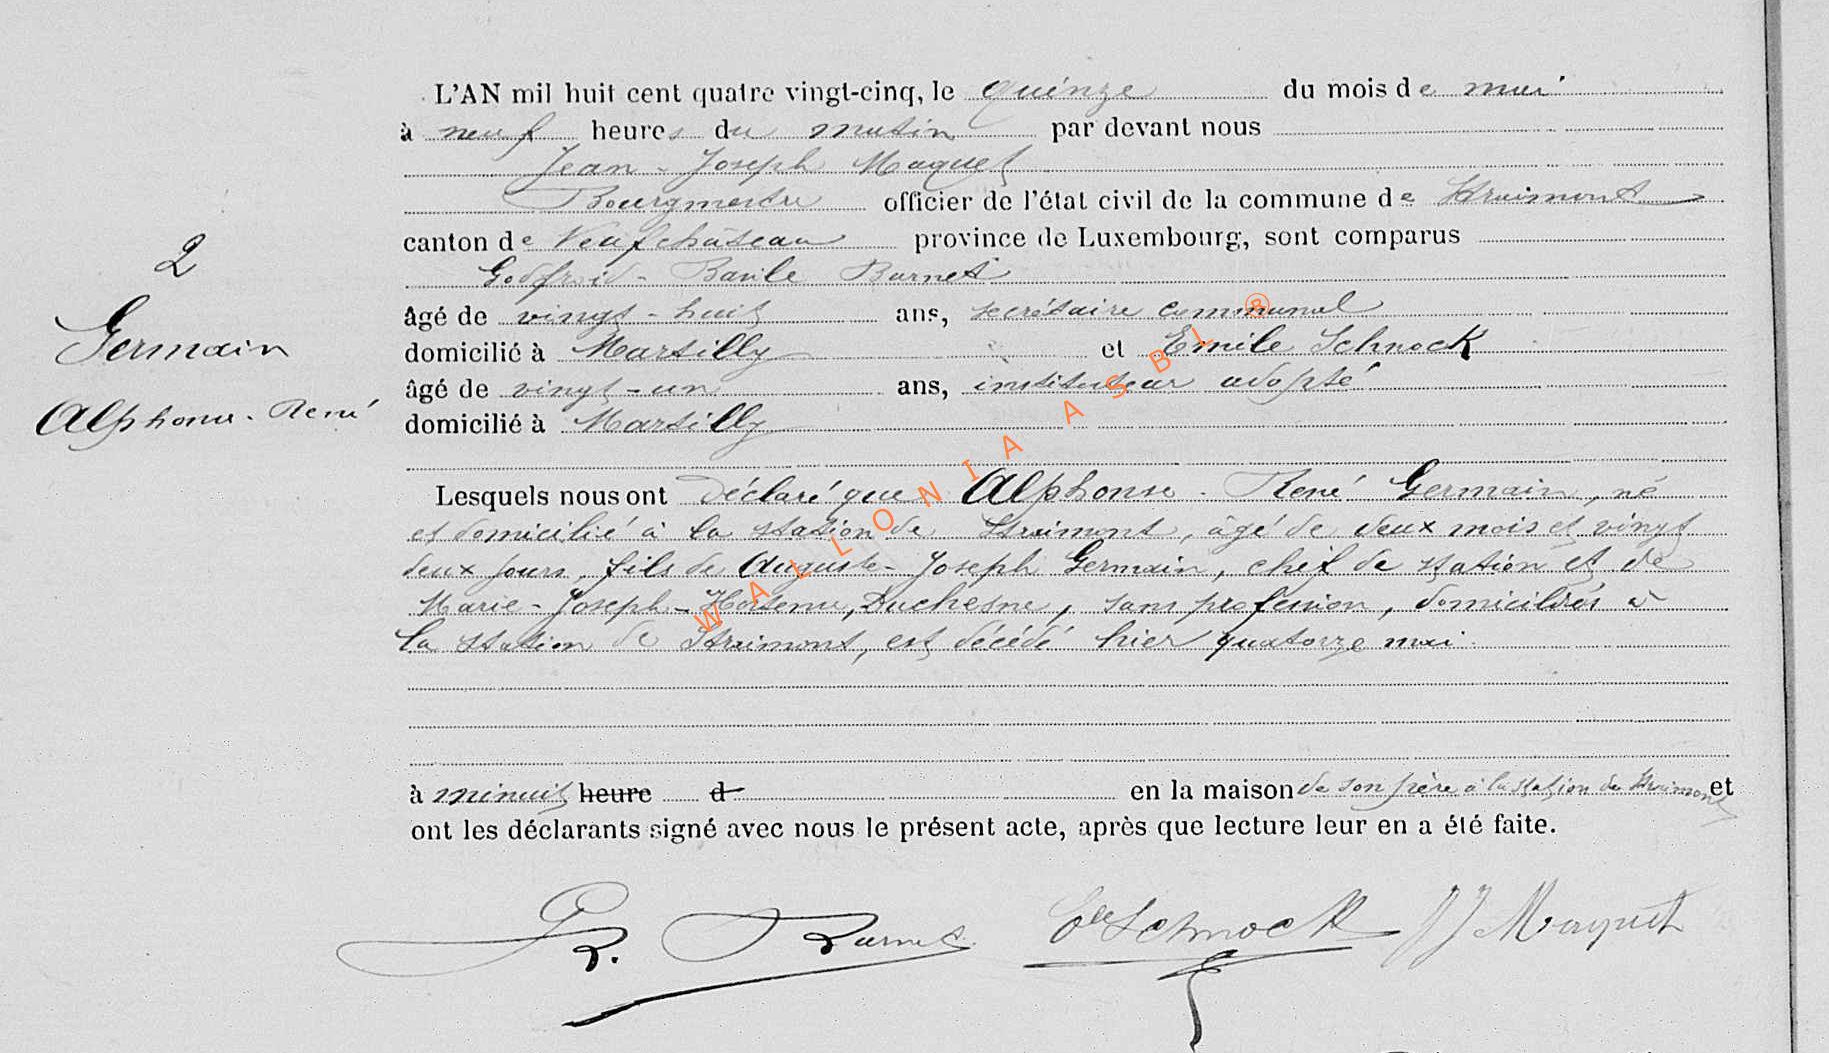 L'AN mil huit cent quatre vingt-cinq, le quinze du mois de mai
à neuf heures du matin par devant nous
Jean-Joseph Maquet
Bourgmestre officier de l'état civil de la commune de Straimont
canton de Neufchâteau province de Luxembourg, sont comparus
Godfroid-Basile Burnet
âgé de vingt-huit ans, secrétaire communal
domicilié à Martilly et Emile Schnock
âgé de vingt-un ans, instituteur adopté
domicilié à Martilly
2
Germain
Alphonse-René
Lesquels nous ont déclaré que Alphonse-René Germain, né
et domicilié à la station de Straimont, âgé de deux mois et vingt
deux jours, fils de Auguste-Joseph Germain, chef de station et de
Marie-Joseph-Hortense, Duchesne, sans profession, domiciliés à
la station de Straimont, est décédé hier quatorze mai
à minuit heure d en la maison de son père à la station de Straimont et
ont les déclarants signé avec nous le présent acte, après que lecture leur en a été faite.
G. B. Burnet Ele Schnock JJ Maquet
WALLONIA ASBL ®